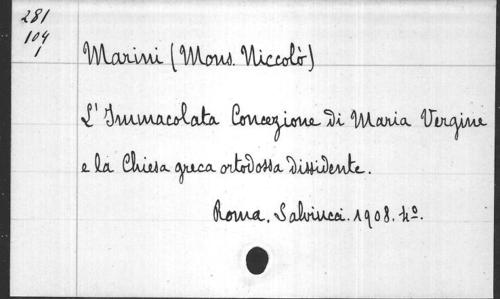 281
104
1
Marini (Mons. Niccolò)
L'Immacolata Concezione di Maria Vergine
e la Chiesa greca ortodossa dissidente.
Roma. Salviucci. 1908. 4º.